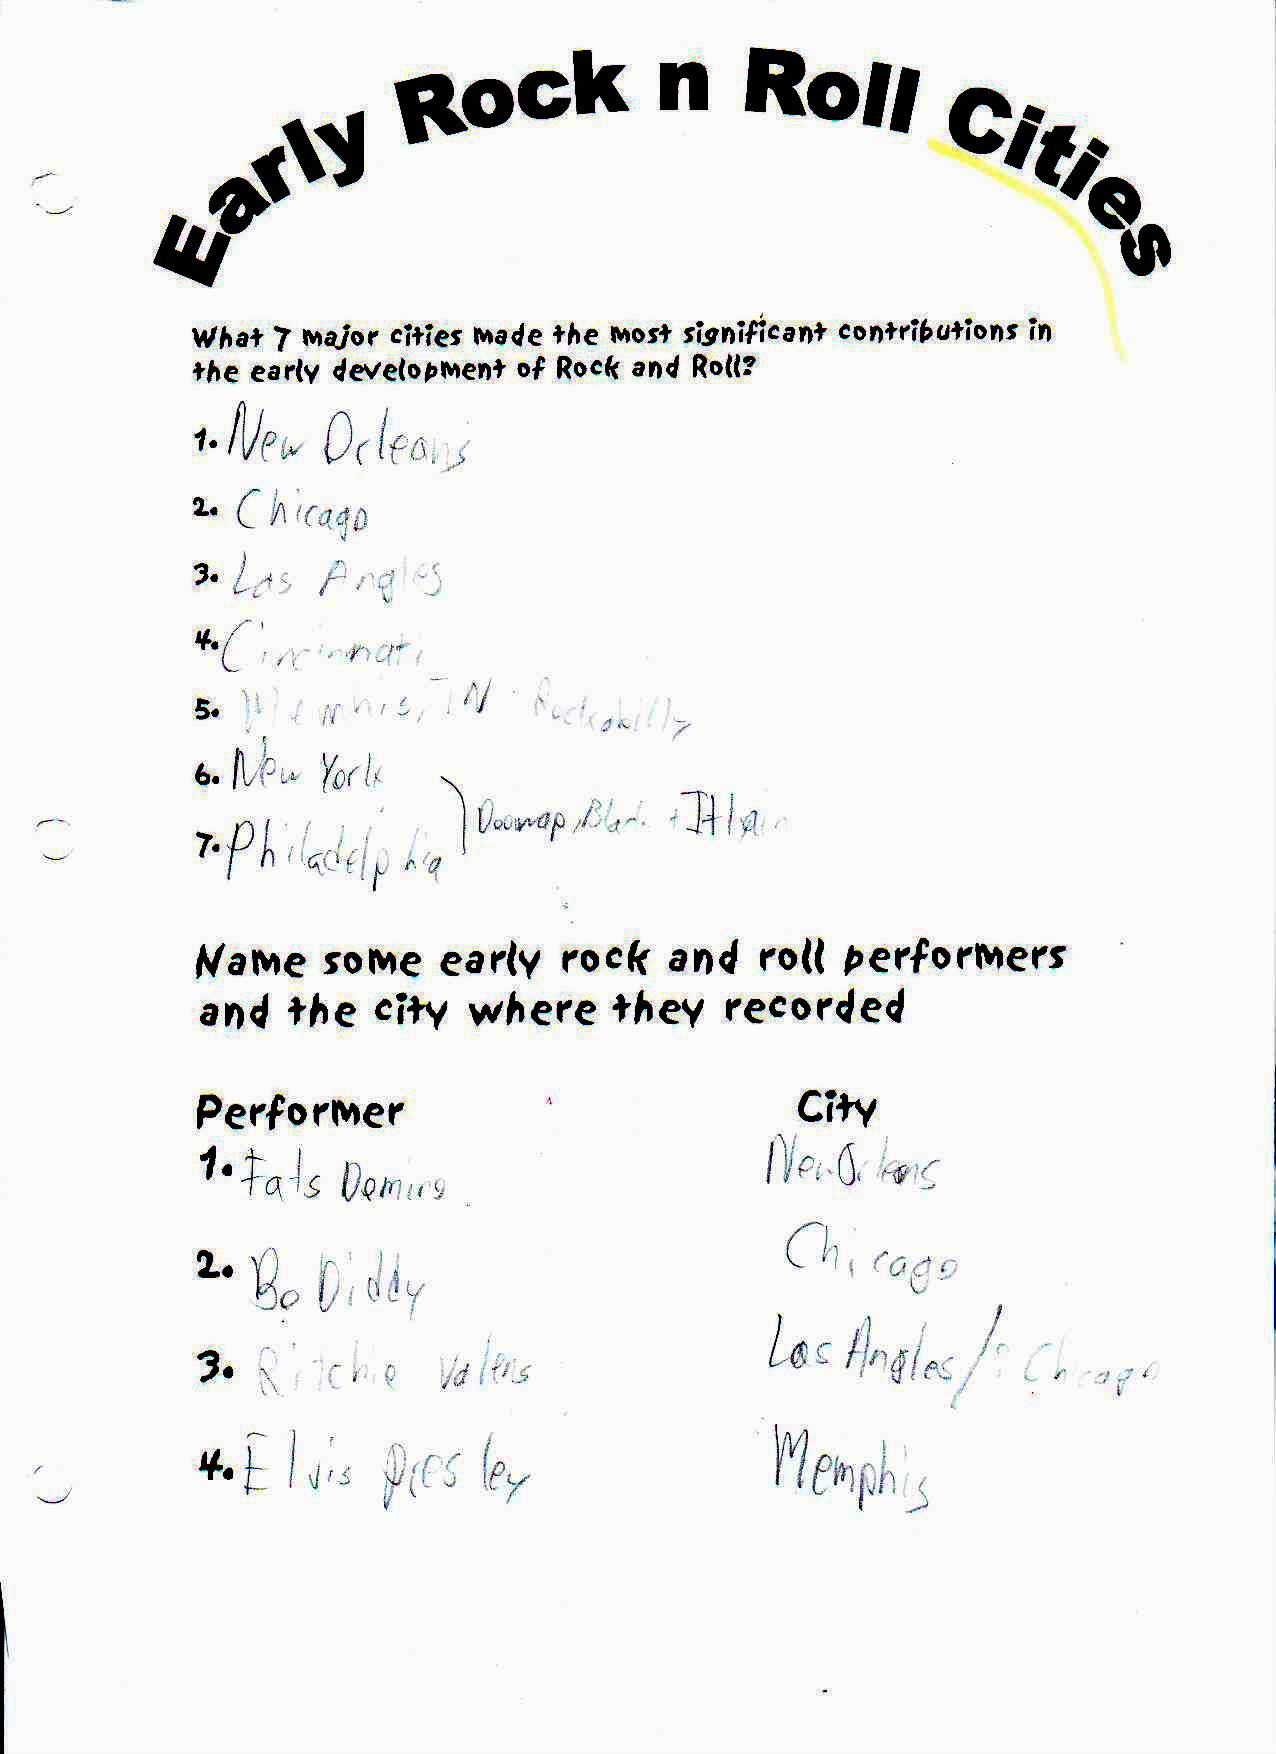 Early Rock n Roll Cities
What 7 major cities made the most significant contributions in
the early development of Rock and Roll?
1. New Orleans
2. Chicago
3. Los Angles
4. Cincinnati
5. Memphis, TN - Rockabilly
6. New York
7. Philadelphia } Doowop, Black +
Name some early rock and roll performers
and the city where they recorded
Performer City
1. Fats Domino New Orleans
2. Bo Diddy Chicago
3. Ritchie Valens Los Angles / Chicago
4. Elvis Presley Memphis